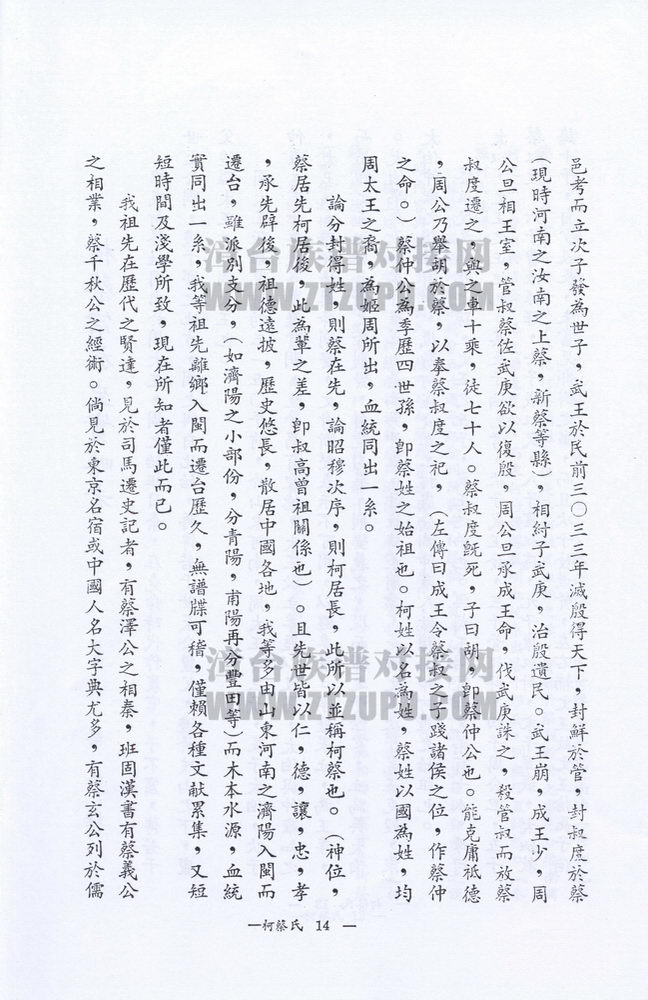 邑考而立次子發為世子，武王於民前三〇三三年滅殷得天下，封鮮於管，封叔度於蔡
（現時河南之汝南之上蔡，新蔡等縣），相紂子武庚，治殷遺民。武王崩，成王少，周
公旦相王室，管叔蔡佐武庚欲以復殷，周公旦承成王命，伐武庚誅之，殺管叔而放蔡
叔度遷之，與之車十乘，徒七十人。蔡叔度既死，子曰胡，即蔡仲公也。能克庸祗德
，周公乃舉胡於蔡，以奉蔡叔度之祀，（左傳曰成王令蔡叔之子踐諸侯之位，作蔡仲
之命。）蔡仲公為季歷四世孫，即蔡姓之始祖也。柯姓以名為姓，蔡姓以國為姓，均
周太王之裔，為姬周所出，血統同出一系。
論分封得姓，則蔡在先，論昭穆次序，則柯居長，此所以並稱柯蔡也。（神位，
蔡居先柯居後，此為輩之差，即叔高曾祖關係也）。且先世皆以仁，德，讓，忠，孝
，承先辟後，祖德遠披，歷史悠長，散居中國各地，我等多由山東河南之濟陽入閩而
遷台，雖派別支分，（如濟陽之小部份，分青陽，甫陽再分豐田等）而木本水源，血統
實同出一系，我等祖先離鄉入閩而遷台歷久，無譜牒可稽，僅賴各種文献累集，又短
短時間及淺學所致，現在所知者僅此而已。
我祖先在歷代之賢達，見於司馬遷史記者，有蔡澤公之相秦，班固漢書有蔡義公
之相業，蔡千秋公之經術。倘見於東京名宿或中國人名大字典尤多，有蔡玄公列於儒
—柯蔡氏 14 —
漳台族谱对接网
WWW.ZTZUPU.COM
漳台族谱对接网
WWW.ZTZUPU.COM